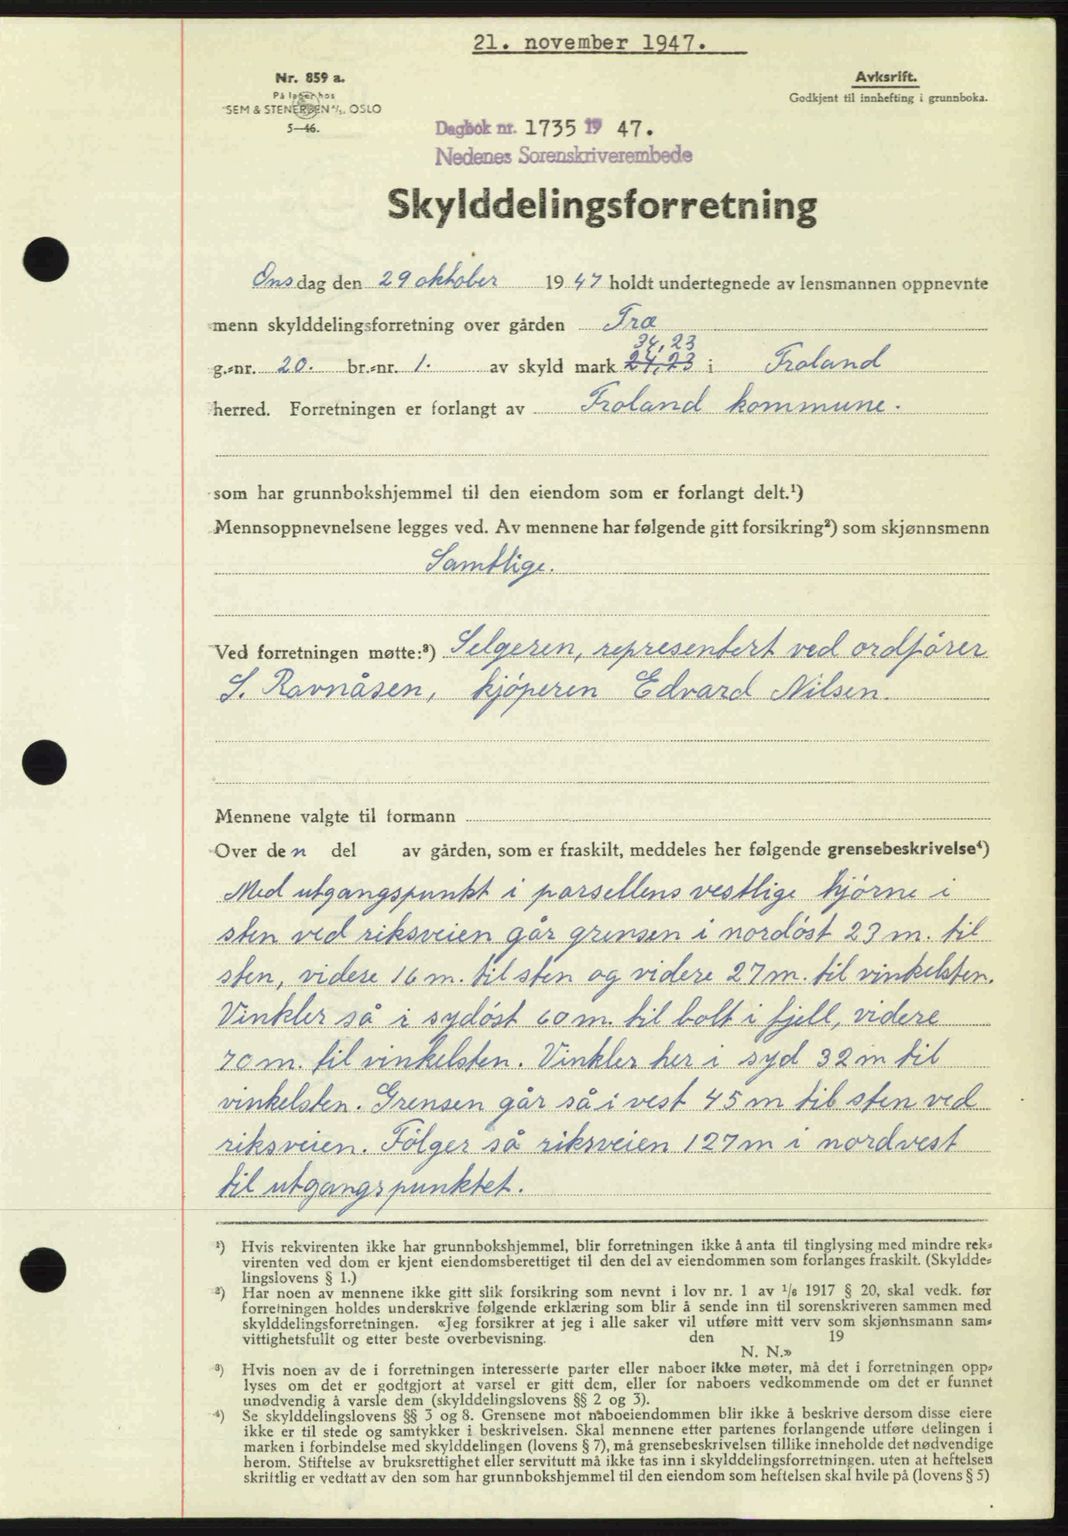 21. november 1947.
Nr. 859 a.
På lager hos
SEM & STENERSEN A/S. OSLO
5—46.
Avksrift.
Godkjent til innhefting i grunnboka.
Dagbok nr. 1735 19 47.
Nedenes Sorenskriverembede
Skylddelingsforretning
Onsdag den 29 oktober 1947 holdt undertegnede av lensmannen oppnevnte
menn skylddelingsforretning over gården Tra
34,23
g.=nr. 20. br.=nr. 1. av skyld mark 24,23 i Froland
herred. Forretningen er forlangt av Froland kommune.
som har grunnbokshjemmel til den eiendom som er forlangt delt.¹)
Mennsoppnevnelsene legges ved. Av mennene har følgende gitt forsikring²) som skjønnsmenn
Samtlige.
Ved forretningen møtte:³) Selgeren, representert ved ordfører
S. Ravnåsen, kjøperen Edvard Nilsen.
Mennene valgte til formann
Over den del av gården, som er fraskilt, meddeles her følgende grensebeskrivelse⁴)
Med utgangspunkt i parsellens vestlige hjørne i
sten ved riksveien går grensen i nordøst 23 m. til
sten, videre 16 m. til sten og videre 27 m. til vinkelsten.
Vinkler så i sydøst 60 m. til bolt i fjell, videre
70 m. til vinkelsten. Vinkler her i syd 32 m til
vinkelsten. Grensen går så i vest 45 m til sten ved
riksveien. Følger så riksveien 127 m i nordvest
til utgangspunktet.
¹) Hvis rekvirenten ikke har grunnbokshjemmel, blir forretningen ikke å anta til tinglysing med mindre rek=
virenten ved dom er kjent eiendomsberettiget til den del av eiendommen som forlanges fraskilt. (Skyldde=
lingslovens § 1.)
²) Har noen av mennene ikke gitt slik forsikring som nevnt i lov nr. 1 av 1/6 1917 § 20, skal vedk. før
forretningen holdes underskrive følgende erklæring som blir å sende inn til sorenskriveren sammen med
skylddelingsforretningen. «Jeg forsikrer at jeg i alle saker vil utføre mitt verv som skjønnsmann sam=
vittighetsfullt og etter beste overbevisning. den 19
N. N.»
³) Hvis noen av de i forretningen interesserte parter eller naboer ikke møter, må det i forretningen opp=
lyses om det er godtgjort at varsel er gitt dem, eller for naboers vedkommende om det er funnet
unødvendig å varsle dem (skylddelingslovens §§ 2 og 3).
⁴) Se skylddelingslovens §§ 3 og 8. Grensene mot naboeiendommen blir ikke å beskrive dersom disse eiere
ikke er til stede og samtykker i beskrivelsen. Skal mennene etter partenes forlangende utføre delingen i
marken i forbindelse med skylddelingen (lovens § 7), må grensebeskrivelsen tillike inneholde det nødvendige
herom. Stiftelse av bruksrettighet eller servitutt må ikke tas inn i skylddelingsforretningen, uten at heftelsen
skriftlig er vedtatt av den som har grunnbokshjemmel til den eiendom som heftelsen skal hvile på (lovens § 5)